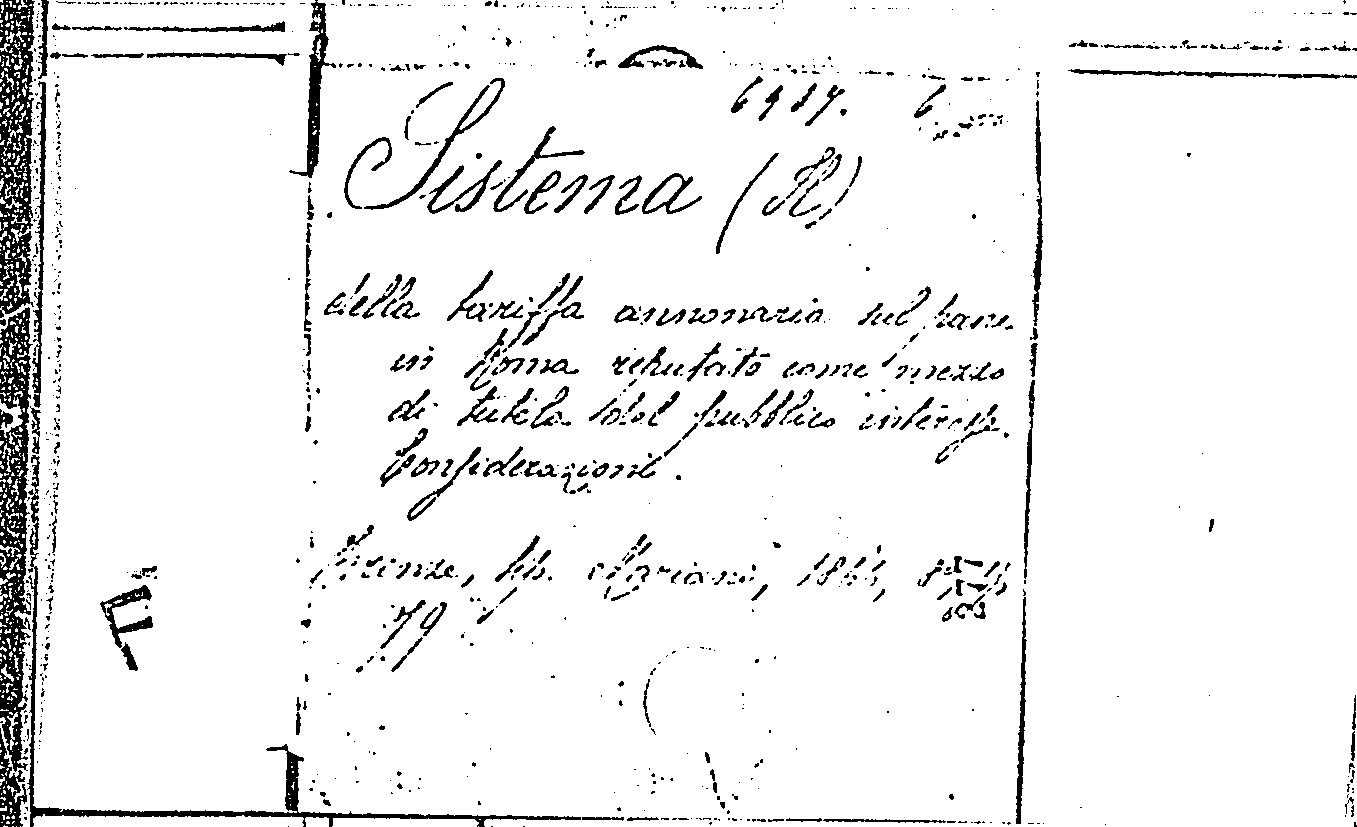 6
Sistema (Il)
della tariffa annonaria sul pane
in Roma reputato come mezzo
di tutela del pubblico interesse.
Considerazioni.
Firenze, tip. Mariani, 1864, 8°
79